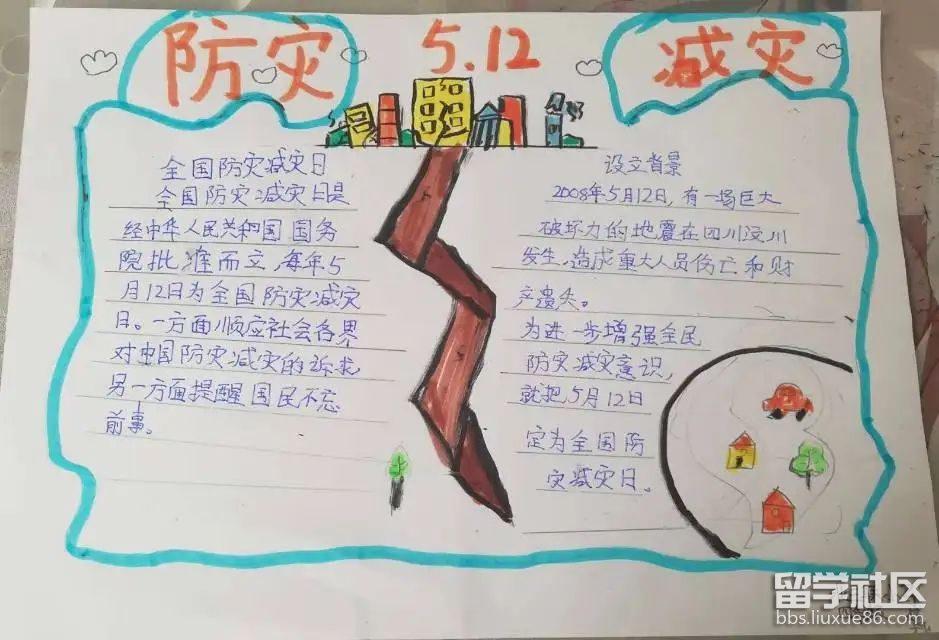 防灾
5.12
减灾
全国防灾减灾日
全国防灾减灾日是
经中华人民共和国国务
院批准而立,每年5
月12日为全国防灾减灾
日。一方面顺应社会各界
对中国防灾减灾的诉求
另一方面提醒国民不忘
前事。
设立背景
2008年5月12日,有一场巨大
破坏力的地震在四川汶川
发生,造成重大人员伤亡和财
产遗失。
为进一步增强全民
防灾减灾意识,
就把5月12日
定为全国防
灾减灾日。
留学社区
bbs.liuxue86.com